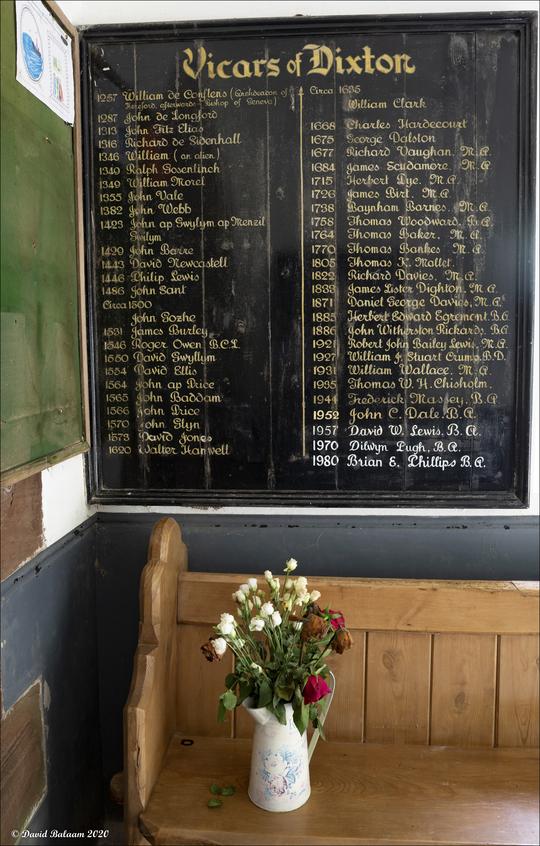 Vicars of Dixton
1257 William de Conflens (Archdeacon of
Hereford, afterwards Bishop of Geneva)
1287 John de Longford
1313 John Fitz Elias
1316 Richard de Sidenhall
1346 William (an alien)
1340 Ralph Gosenlinch
1349 William Morel
1355 John Vale
1382 John Webb
1423 John ap Gwylym ap Menzil
Gwilym
1429 John Barre
1443 David Newcastell
1446 Philip Lewis
1486 John Sant
Circa 1500
John Gozhe
1531 James Burley
1546 Roger Owen B.C.L.
1550 David Gwyllym
1554 David Ellis
1564 John ap Price
1565 John Baddam
1566 John Price
1570 John Glyn
1573 David Jones
1620 Walter Hanwell
Circa 1635
William Clark
1668 Charles Hardecourt
1675 George Dalston
1677 Richard Vaughan, M.A
1684 James Scudamore, M.A
1715 Herbert Lye, M.A
1726 James Birt, M.A
1738 Baynham Barnes, M.A.
1758 Thomas Woodward, B.A
1764 Thomas Baker, M.A
1770 Thomas Bankes M.A
1805 Thomas K. Mallet.
1822 Richard Davies, M.A.
1839 James Lister Dighton, M.A
1871 Daniel George Davies, M.A.
1885 Herbert Edward Egremont, B.A.
1886 John Witherston Rickards, B.A
1921 Robert John Bailey Lewis, M.A.
1927 William J. Stuart Crump, B.D.
1931 William Wallace, M.A.
1935 Thomas W. H. Chisholm.
1941 Frederick Massey, B.A
1952 John C. Dale, B.A.
1957 David W. Lewis, B.A.
1970 Dilwyn Pugh, B.A.
1980 Brian E. Phillips B.A.
© David Balaam 2020